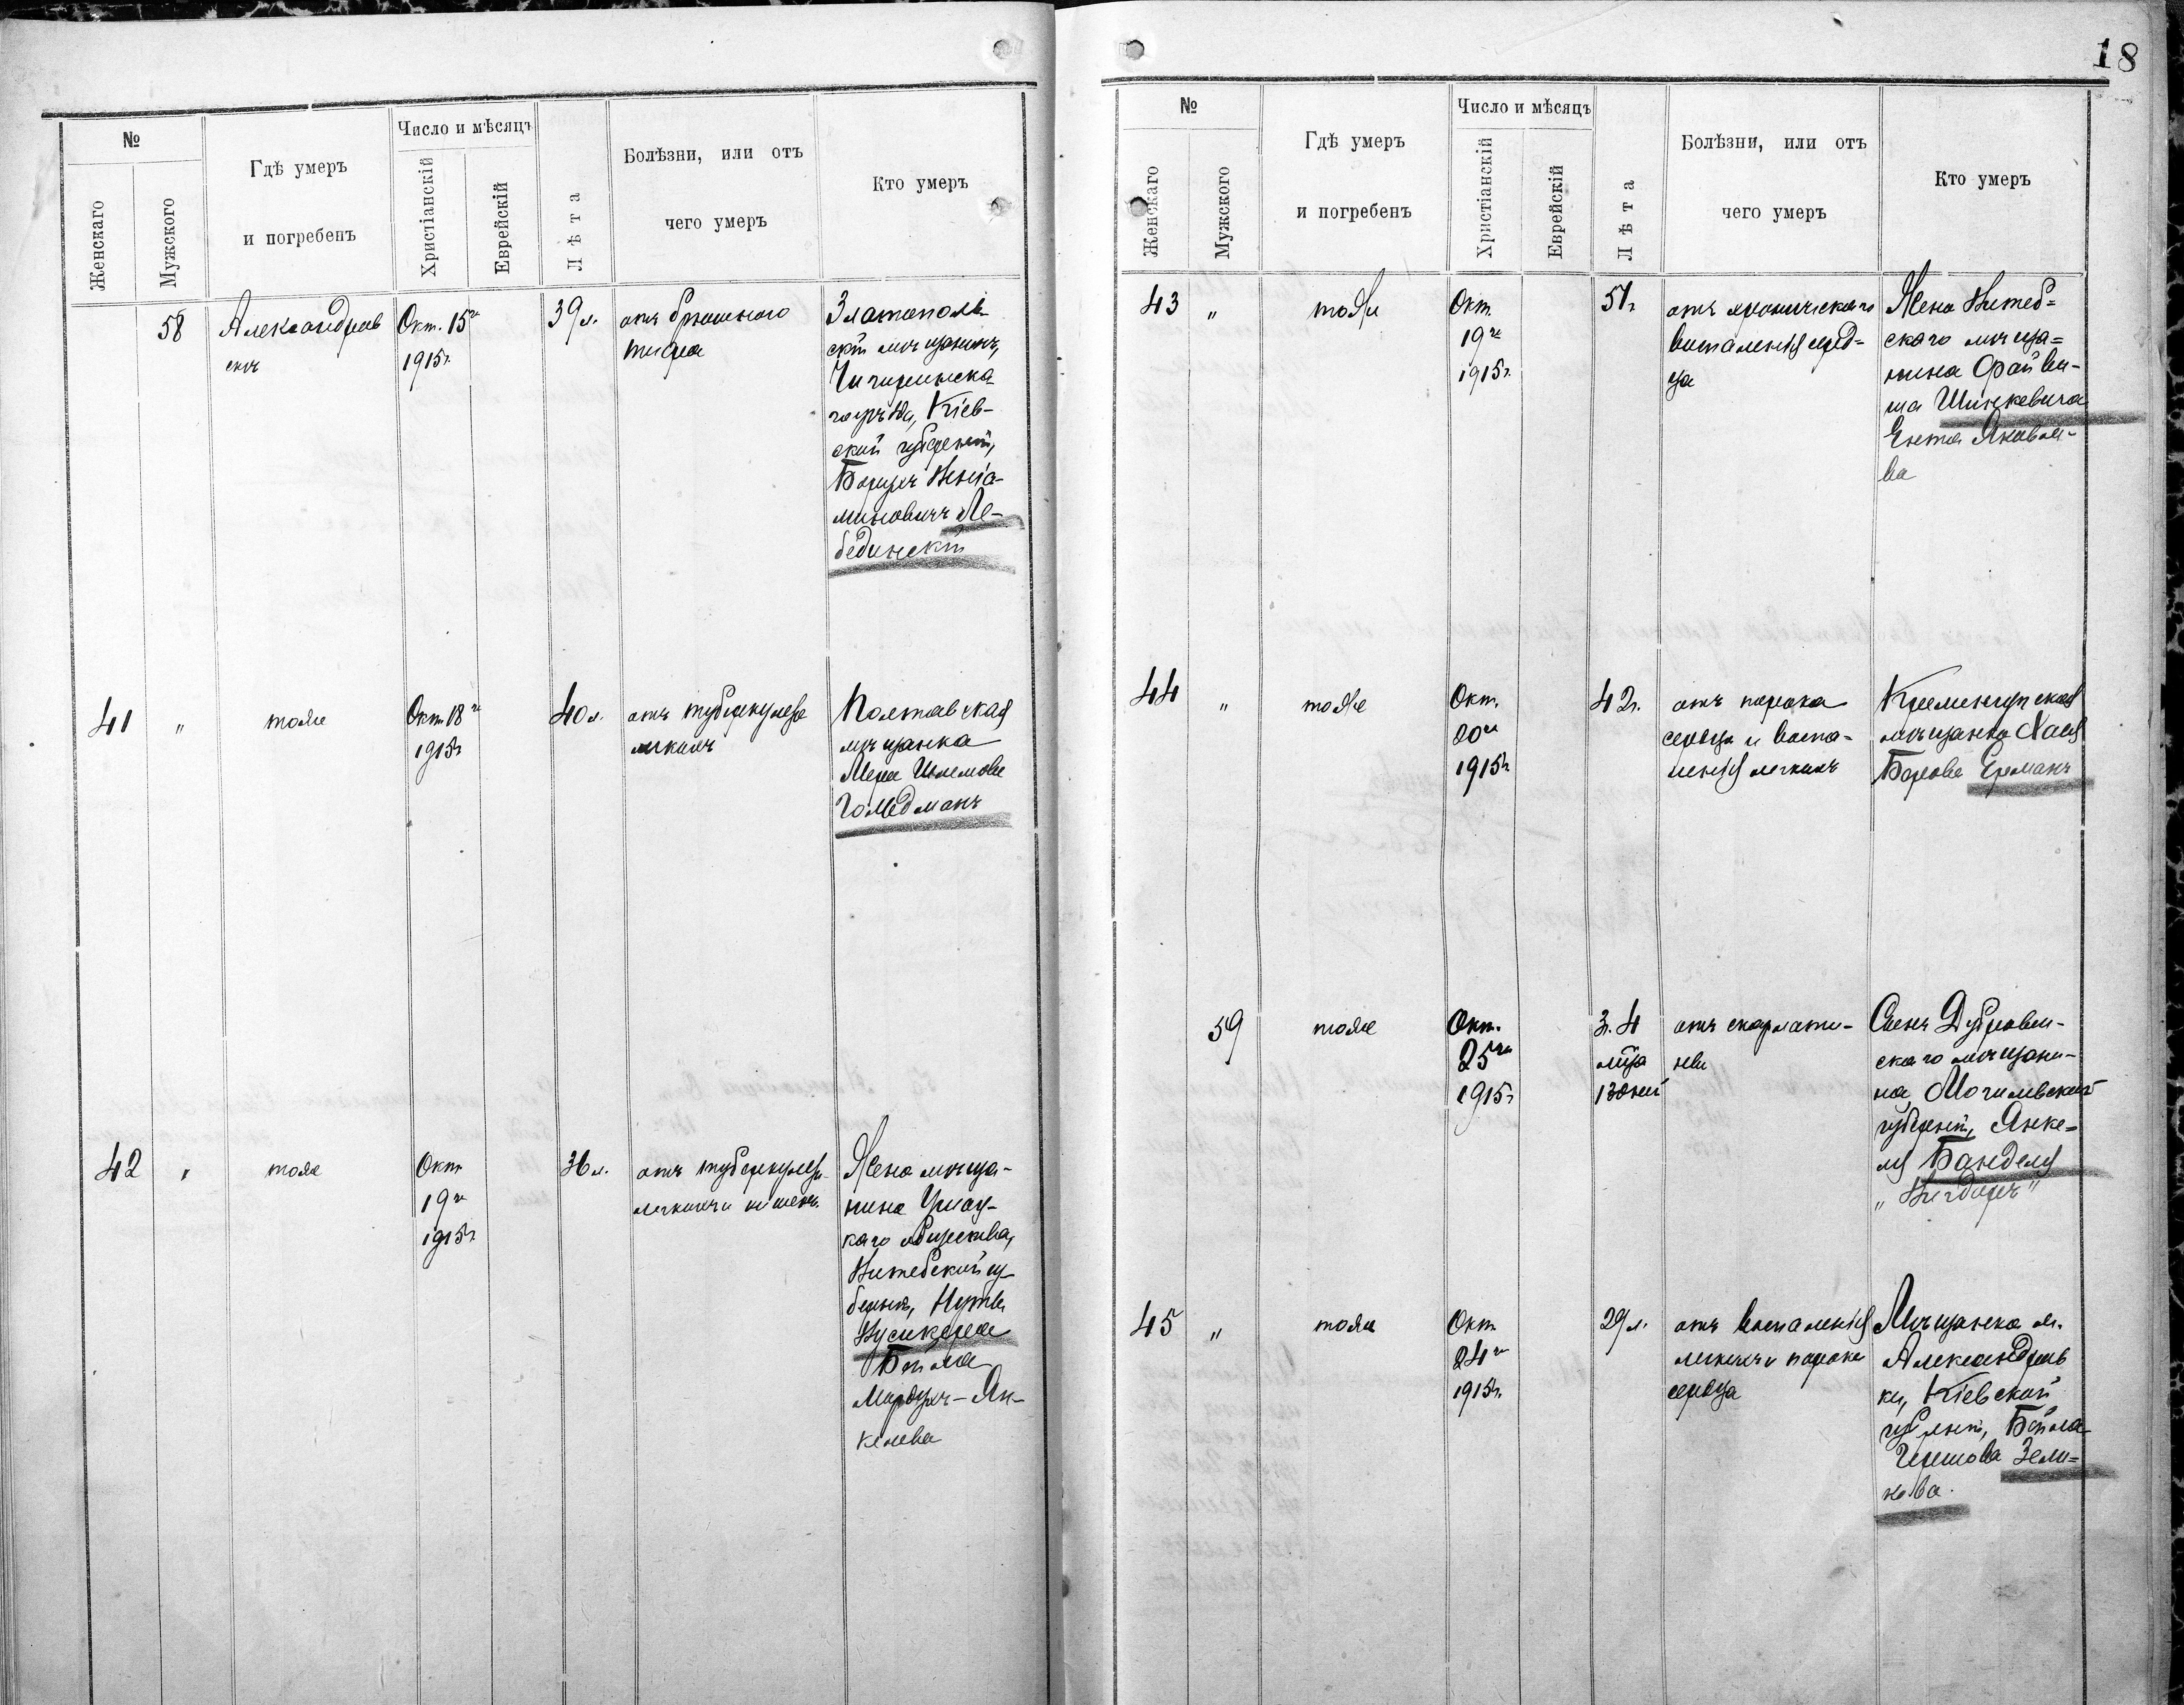 18
№
Женскаго
Мужского
Гдѣ умеръ
и погребенъ
Число и мѣсяцъ
Христіанскій
Еврейскій
Лѣта
Болѣзни, или отъ
чего умеръ
Кто умеръ
58
Александров
скъ
Окт. 15го
1915г.
39 л.
отъ брюшного
тифа
Златополь-
скій мѣщанинъ,
Чигиринска-
го уѣзда, Кіев-
ской губерніи,
Борухъ Веніа-
миновичъ Ле-
бединскій
41
"
тоже
Окт. 18го
1915г.
40 л.
отъ туберкулеза
легкихъ
Полтавская
мѣщанка
Мера Шлемова
Гольдманъ
42
"
тоже
Окт.
19го
1915г.
36 л.
отъ туберкулеза
легкихъ и кишекъ
Жена мѣща-
нина
каго общества,
Витебской гу-
берніи,
Бейла
Мордухъ-Ян-
келева
№
Женскаго
Мужского
Гдѣ умеръ
и погребенъ
Число и мѣсяцъ
Христіанскій
Еврейскій
Лѣта
Болѣзни, или отъ
чего умеръ
Кто умеръ
43
"
тоже
Окт.
19го
1915г.
51 г.
отъ хроническаго
воспаленія серд-
ца
Жена Витеб-
скаго мѣща-
нина Файви-
ша Шинкевича
Ента Яковле-
ва
44
"
тоже
Окт.
20го
1915г.
42 г.
отъ порока
сердца и воспа-
ленія легкихъ
Кременчугская
мѣщанка Хая
Борова Ерманъ
59
тоже
Окт.
25го
1915г.
3 г. 4
мѣс
13 дней
отъ скарлати-
ны
Сынъ Дубровен-
скаго мѣщани-
на, Могилевской
губерніи, Янке-
ля Банделя
„Вигдоръ"
45
"
тоже
Окт.
24го
1915г.
29 л.
отъ воспаленія
легкихъ и порока
сердца
Мѣщанка м.
Александров
ки, Кіевской
губерніи, Бейла
Гершова Зели-
кова.